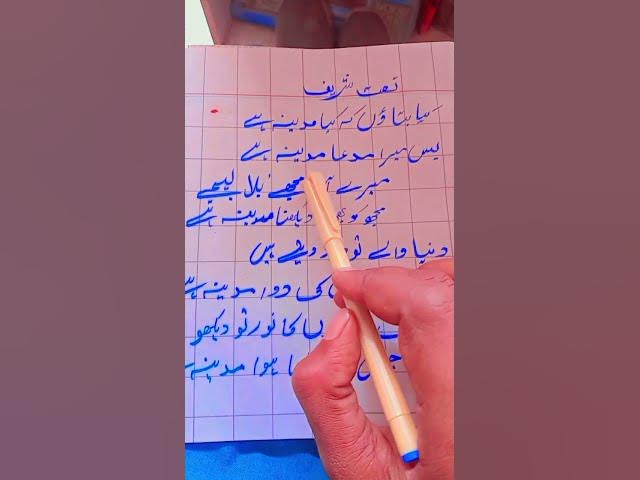 نعت شریف
کیا بتاؤں کہ کیا مدینہ ہے
بس میرا مدعا مدینہ ہے
میرے مجھے بلا لیجیے
مجھ کو دیکھنا مدینہ ہے
دنیا والے تو درد دیتے ہیں
کی دوا مدینہ ہے
کا نور تو دیکھو
ہوا مدینہ ہے